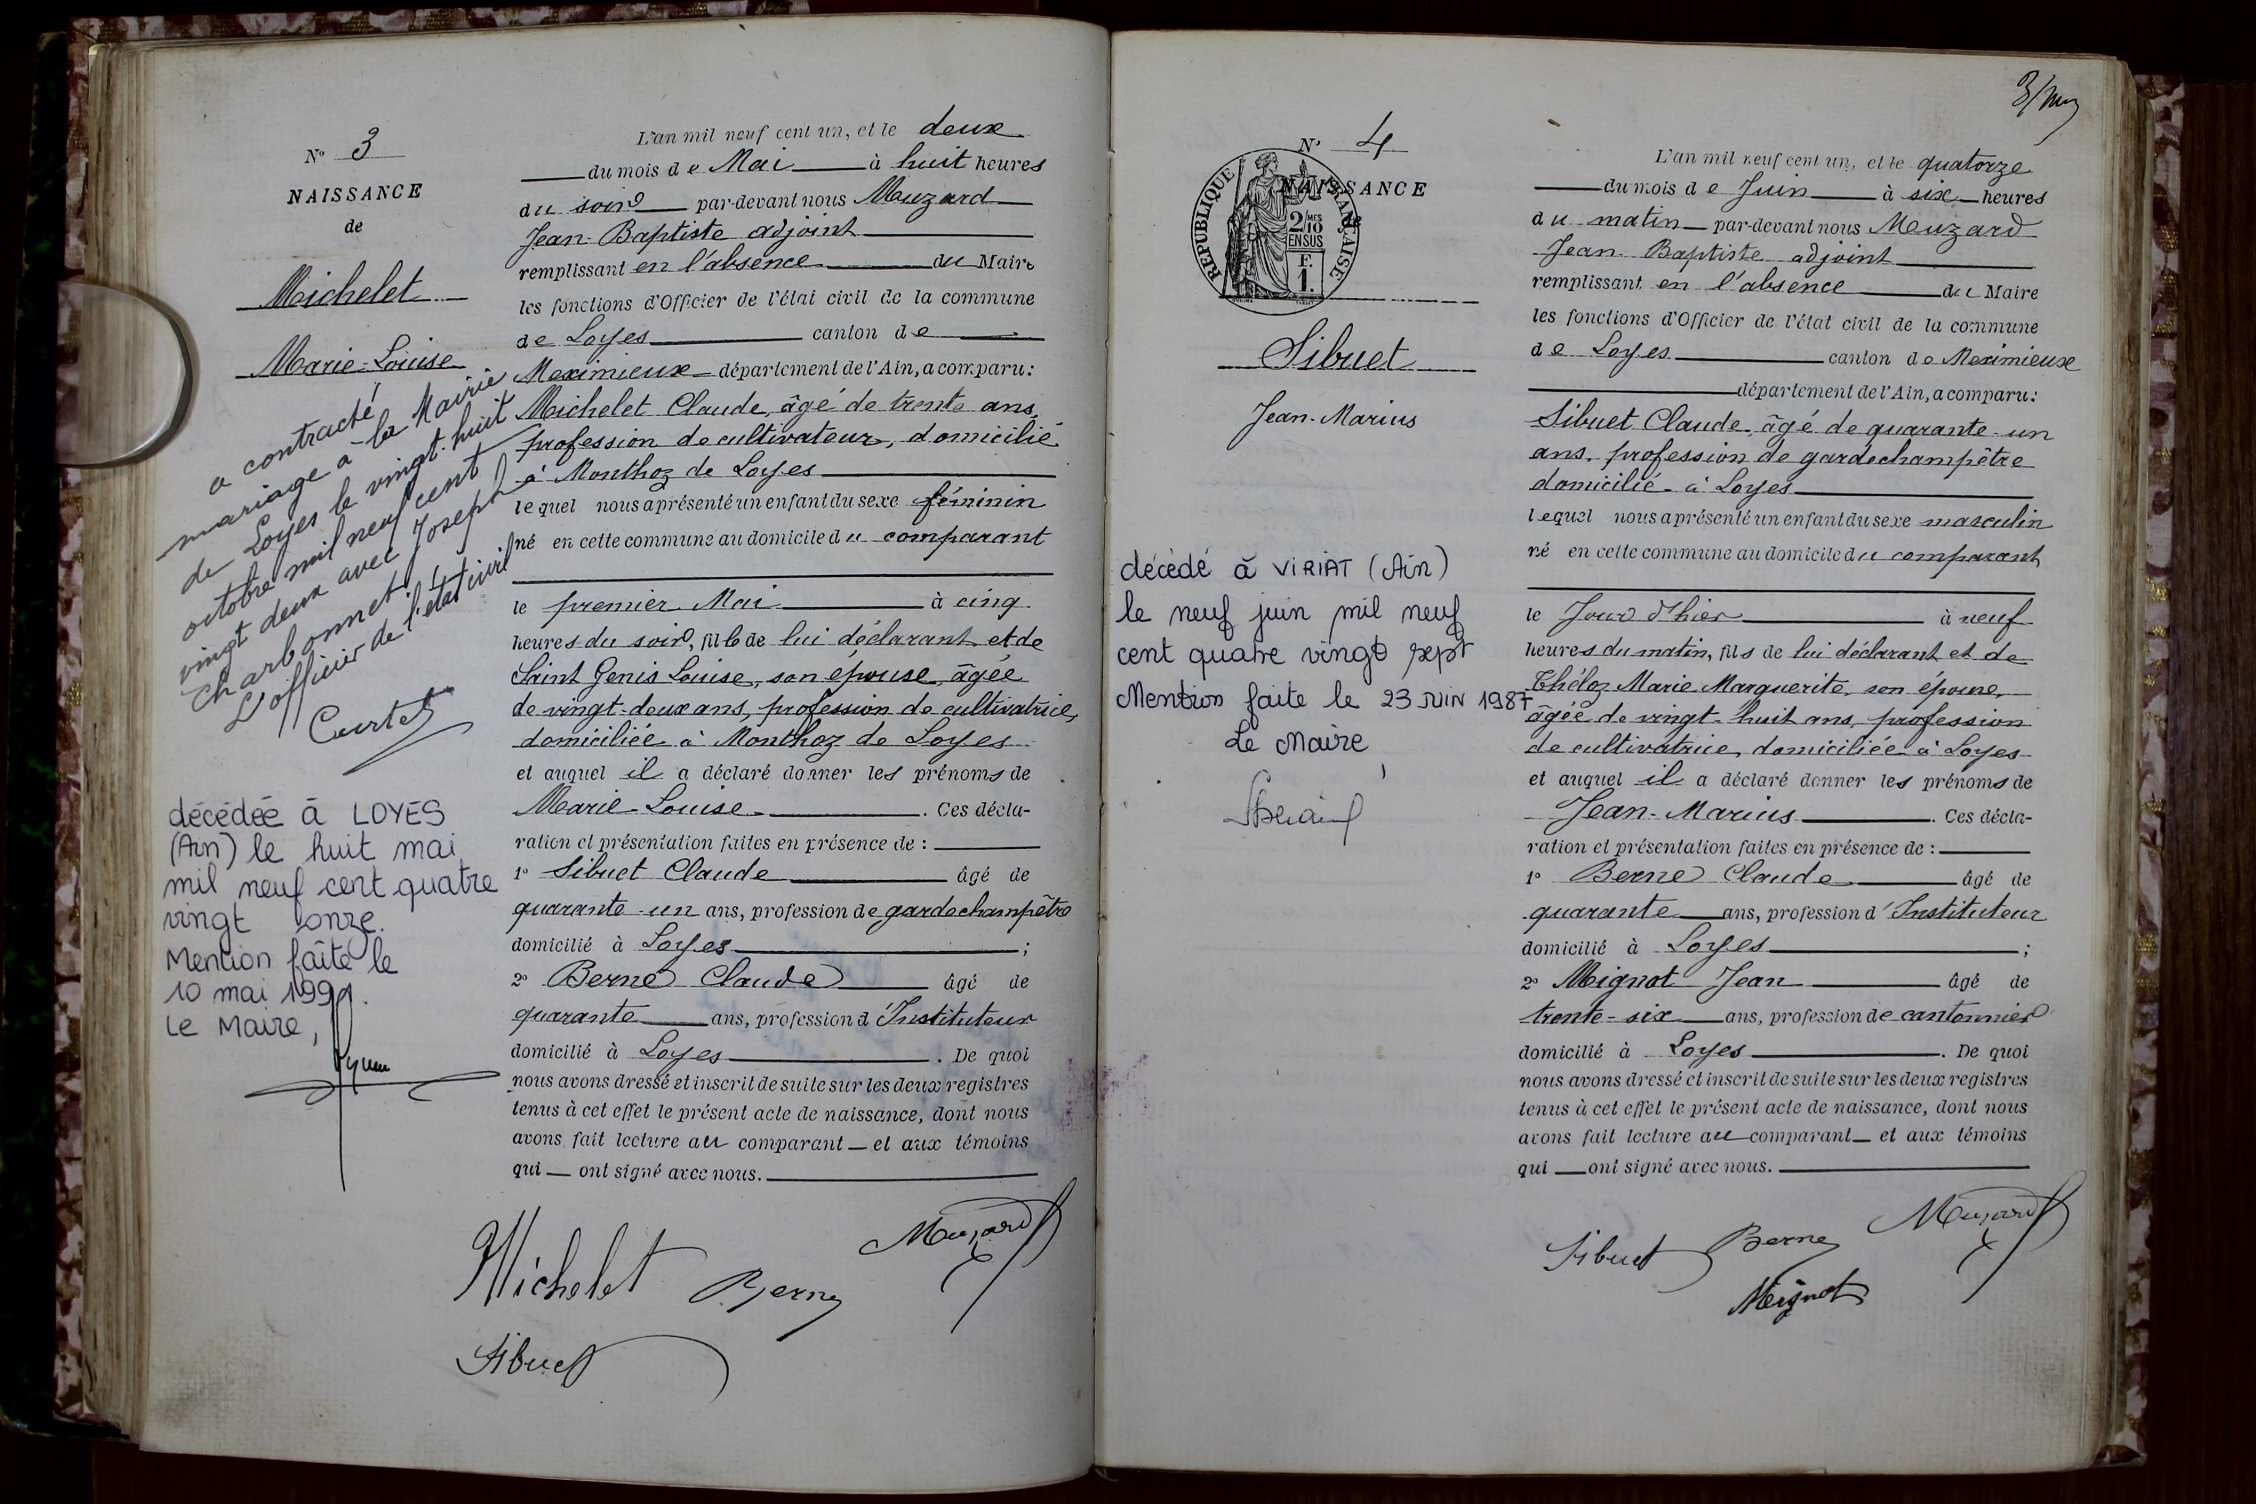 N° 3
NAISSANCE
de
Michelet
Marie-Louise
a contracté
mariage à la Mairie
de Loyes le vingt-huit
octobre mil neuf cent
vingt deux avec Joseph
Charbonnet.
L'officier de l'état civil
Curtet
décédée à LOYES
(Ain) le huit mai
mil neuf cent quatre
vingt onze.
Mention faite le
10 mai 1991.
Le Maire,
L'an mil neuf cent un, et le deux
du mois de Mai à huit heures
du soir par-devant nous Muzard
Jean-Baptiste adjoint
remplissant en l'absence du Maire
les fonctions d'Officier de l'état civil de la commune
de Loyes canton de
Meximieux département de l'Ain, a comparu:
Michelet Claude, âgé de trente ans,
profession de cultivateur, domicilié
à Monthoz de Loyes
lequel nous a présenté un enfant du sexe féminin
né en cette commune au domicile du comparant
le premier Mai à cinq
heures du soir, fille de lui déclarant et de
Saint Genis Louise, son épouse, âgée
de vingt-deux ans, profession de cultivatrice,
domiciliée à Monthoz de Loyes
et auquel il a déclaré donner les prénoms de
Marie-Louise. Ces décla-
ration et présentation faites en présence de :
1° Sibuet Claude âgé de
quarante-un ans, profession de garde champêtre
domicilié à Loyes ;
2° Berne Claude âgé de
quarante ans, profession d'Instituteur
domicilié à Loyes. De quoi
nous avons dressé et inscrit de suite sur les deux registres
tenus à cet effet le présent acte de naissance, dont nous
avons fait lecture au comparant et aux témoins
qui ont signé avec nous.
Michelet Berne Muzard
Sibuet
3/
N° 4
NAISSANCE
de
RÉPUBLIQUE FRANÇAISE
2/10 MES
EN SUS
F.
1.
Sibuet
Jean-Marius
décédé à VIRIAT (Ain)
le neuf juin mil neuf
cent quatre vingt sept
Mention faite le 23 JUIN 1987
Le Maire,
L'an mil neuf cent un, et le quatorze
du mois de Juin à six heures
du matin par-devant nous Muzard
Jean-Baptiste adjoint
remplissant en l'absence du Maire
les fonctions d'Officier de l'état civil de la commune
de Loyes canton de Meximieux
département de l'Ain, a comparu:
Sibuet Claude, âgé de quarante-un
ans, profession de garde champêtre
domicilié à Loyes
lequel nous a présenté un enfant du sexe masculin
né en cette commune au domicile du comparant
le Jour d'hier à neuf
heures du matin, fils de lui déclarant et de
Théloz Marie Marguerite, son épouse,
âgée de vingt-huit ans, profession
de cultivatrice, domiciliée à Loyes
et auquel il a déclaré donner les prénoms de
Jean-Marius. Ces décla-
ration et présentation faites en présence de :
1° Berne Claude âgé de
quarante ans, profession d'Instituteur
domicilié à Loyes ;
2° Mignot Jean âgé de
trente-six ans, profession de cantonnier
domicilié à Loyes. De quoi
nous avons dressé et inscrit de suite sur les deux registres
tenus à cet effet le présent acte de naissance, dont nous
avons fait lecture au comparant et aux témoins
qui ont signé avec nous.
Sibuet Berne Muzard
Mignot